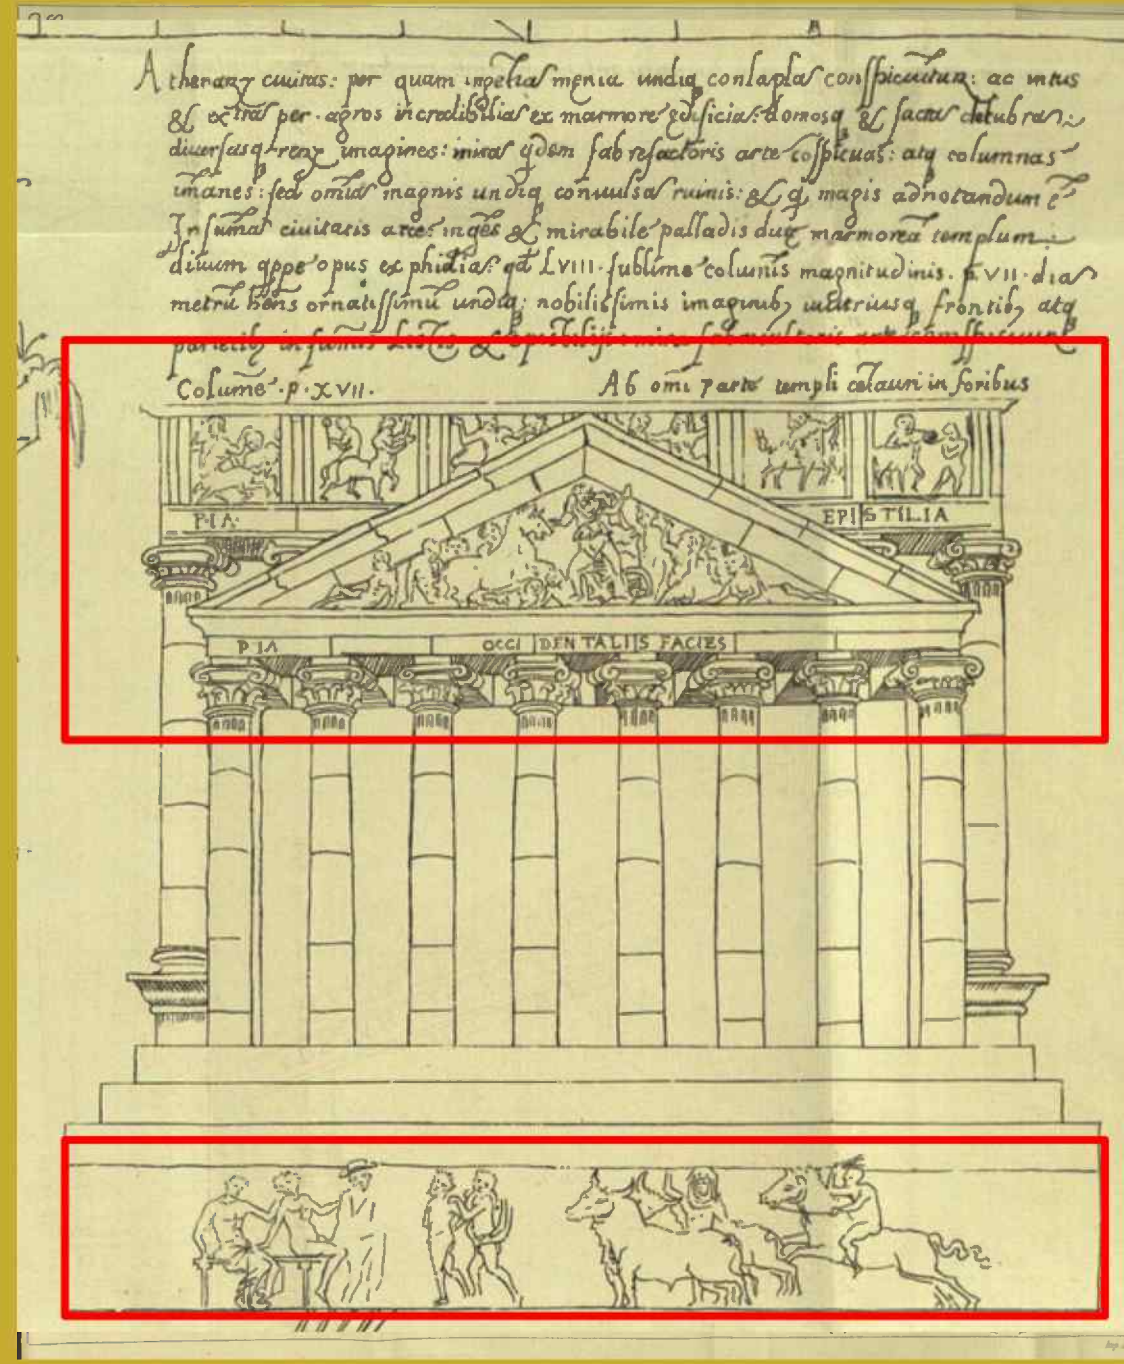 Athenarum civitas: per quam inpesias menia undiq conlapsas conspicuntur: ac intus
& extras per agros incredibilias ex marmore edificias: domosq & sacra delubran:
diversasq imagines: miras qdem fabrefactoris arte cospicuas: atq columnas
imanes: sed omias magnis undiq convulsas ruinis: & q magis adnotandum e
In sumas civitatis arce: inges & mirabile palladis duq marmorea templum:
divum qppe opus ex phidia: qd LVIII. sublime columis magnitudinis. p. VII. dia
metru hens ornatissimu undiq: nobilissimis imaginib, utriusq frontib, atq
parietib, in sumis
Colume . p . XVII.
Ab omi parte templi in foribus
P·I A·
EPISTILIA
P I A
OCCIDENTALIIS FACIES